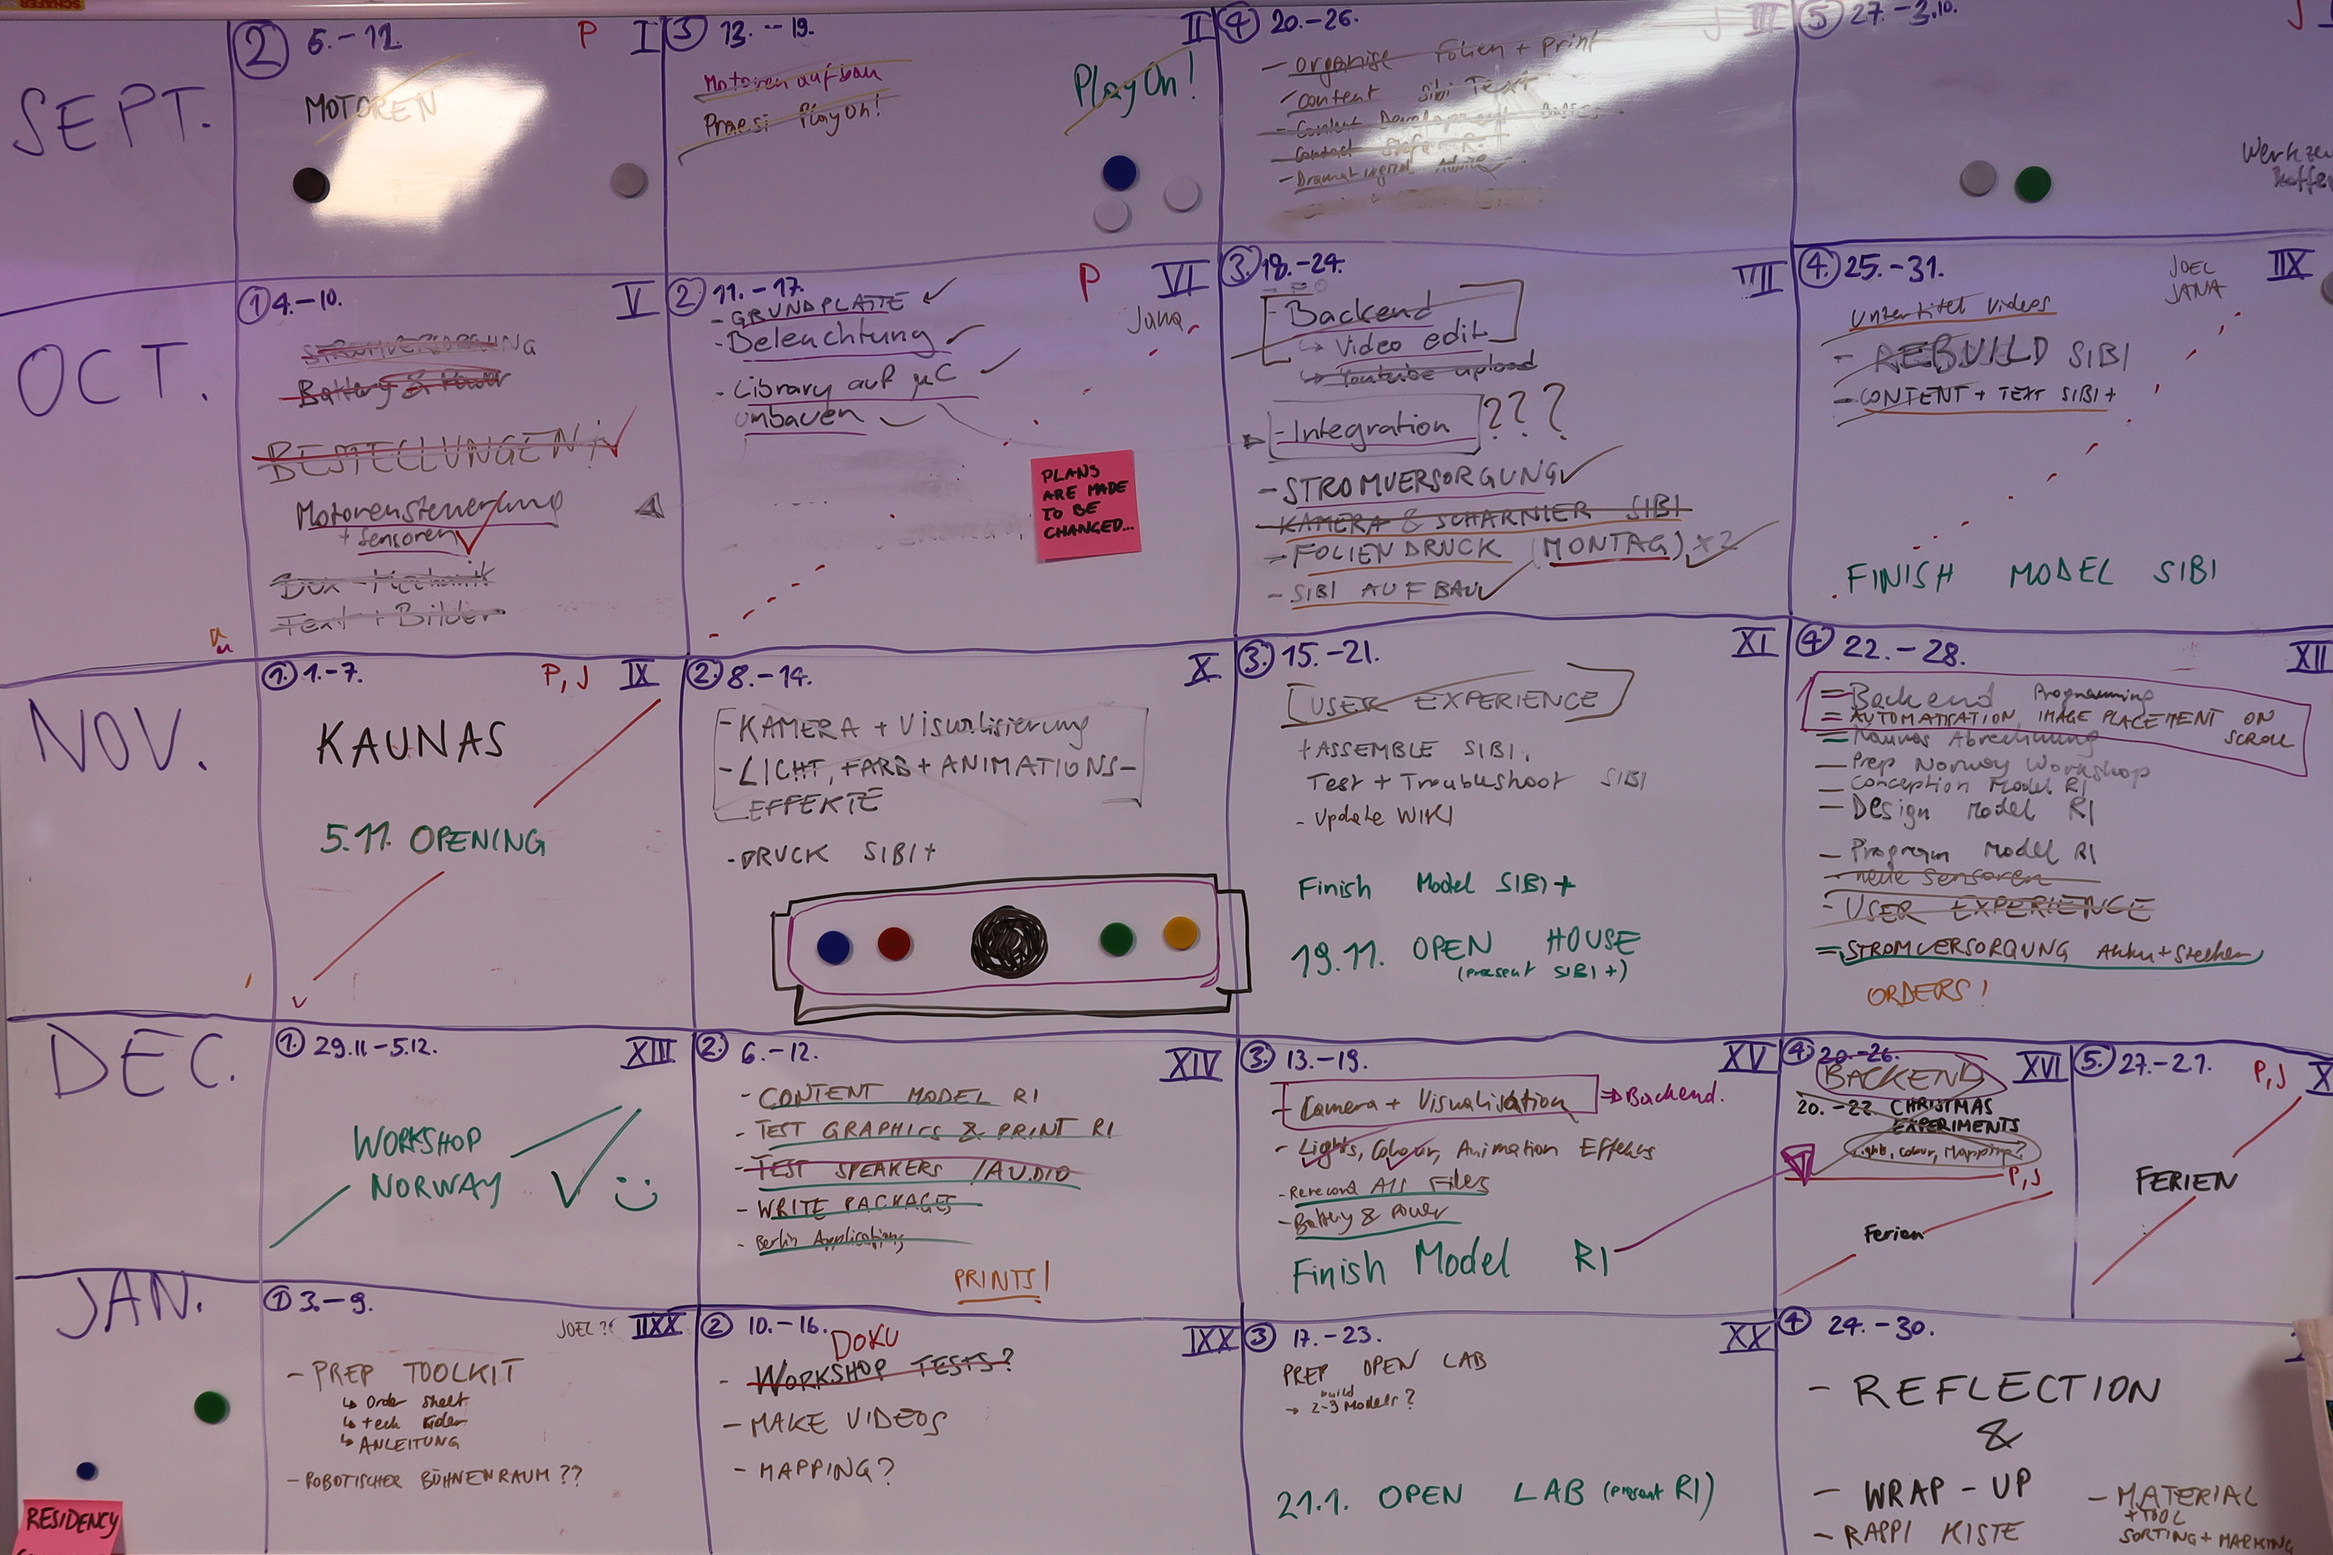 SCHÄFER
SEPT.
2 6.-12. P I
MOTOREN
3 13.-19. II
Motoren aufbau
Praesi PlayOn!
PlayOn!
4 20.-26. J III
- organise Folien + print
content Sibi Text
- Content Development
- Contact
- Dramaturgical Advice
5 27.-3.10. J
Werkze
Koffer
OCT.
1 4.-10. V
STROMVERSORGUNG
Battery & Power
BESTELLUNGEN!
Motorensteuerung
+ Sensoren
Box-Mechanik
Text + Bilder
2 11.-17. P VI
Jana
- GRUNDPLATTE
- Beleuchtung
- Library auf µC
umbauen
PLANS
ARE MADE
TO BE
CHANGED...
3. 18.-24. VII
- Backend
↳ Video edit
↳ Youtube upload
- Integration ???
- STROMVERSORGUNG
- KAMERA & SCHARNIER SIBI
- FOLIENDRUCK (MONTAG) x2
- SIBI AUFBAU
4. 25.-31. IIX
JOEL
JANA
Untertitel Videos
- REBUILD SIBI
- CONTENT + TEXT SIBI+
FINISH MODEL SIBI
NOV.
1. 1.-7. P, J IX
KAUNAS
5.11. OPENING
2. 8.-14. X
- KAMERA + Visualisierung
- LICHT, FARB + ANIMATIONS-
EFFEKTE
- DRUCK SIBI+
3. 15.-21. XI
USER EXPERIENCE
+ ASSEMBLE SIBI.
Test + Troubleshoot SIBI
- Update WIKI
Finish Model SIBI+
19.11. OPEN HOUSE
(present SIBI+)
4 22.-28. XII
- Backend Programming
- AUTOMATISATION, IMAGE PLACEMENT ON
SCROLL
- Kaunas Abrechnung
- Prep Norway Workshop
Conception Model RI
- Design Model RI
- Program Model RI
- neue Sensoren
- USER EXPERIENCE
- STROMVERSORGUNG Akku + Stecker
ORDERS!
DEC.
1. 29.11-5.12. XIII
WORKSHOP
NORWAY
2. 6.-12. XIV
- CONTENT MODEL RI
- TEST GRAPHICS & PRINT RI
- TEST SPEAKERS / AUDIO
- WRITE PACKAGES
- Berlin Application
PRINTS!
3. 13.-19. XV
- Camera + Visualisation ⇒ Backend.
- Lights, Colour, Animation Effects
- Rerecord All Files
- Battery & Power
Finish Model RI
4. 20.-26. XVI
BACKEND
20.-22. CHRISTMAS
EXPERIMENTS
Lights, Colour, Mapping?
P, J
Ferien
5. 27.-2.1. P, J X
FERIEN
JAN.
1 3.-9. JOEL?? IIXX
- PREP TOOLKIT
↳ Order Sheet
↳ tech Rider
↳ ANLEITUNG
- ROBOTISCHER BÜHNENRAUM ??
RESIDENCY
2 10.-16. IXX
DOKU
- WORKSHOP TESTS?
- MAKE VIDEOS
- MAPPING?
3 17.-23. XX
PREP OPEN LAB
build
→ 2-3 Models?
21.1. OPEN LAB (present RI)
4 24.-30.
- REFLECTION
&
- WRAP-UP
- RAPPI KISTE
- MATERIAL
+ TOOL
SORTING + MARKING